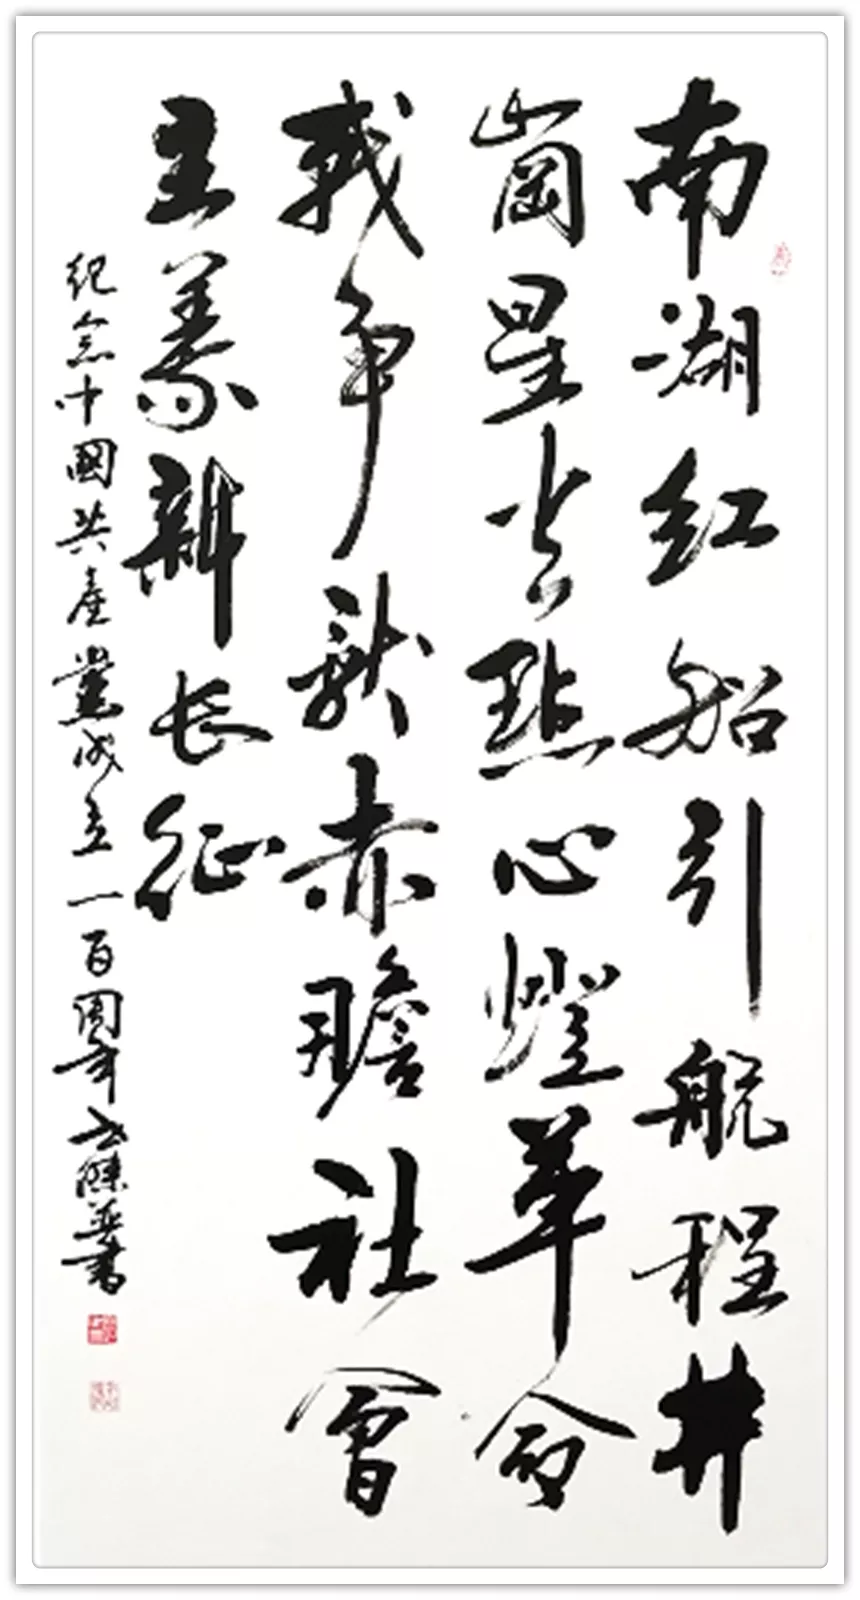 南湖红船引航程井
崗星火點心燈革命
战争献赤膽社會
主義新长征
纪念中國共產黨成立一百周年 书